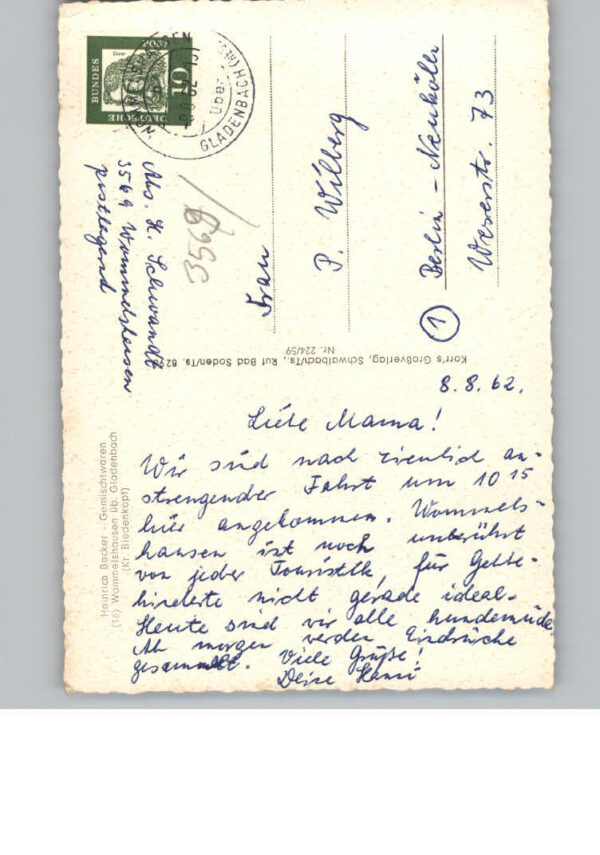 8.8.62.
Liebe Mama!
Wir sind nach ziemlich an-
strengender Fahrt um 10 15
hier angekommen. Wommels-
hausen ist noch unberührt
von jeder Touristik, für Gehbe-
hinderte nicht gerade ideal.
Heute sind wir alle hundemüde.
Ab morgen werden Eindrücke
gesammelt. Viele Grüße!
Deine Hanni
Frau
P. Wilberg
① Berlin - Neukölln
Weserstr. 73
Abs. H. Schwandt
3569 Wommelshausen
postlagernd
3569
DEUTSCHE BUNDESPOST
10
WOMMELSHAUSEN
über
GLADENBACH
Korr's Großverlag, Schwalbach/Ts., Ruf Bad Soden/Ts.
Nr. 224/59
Heinrich Becker - Gemischtwaren
(16) Wommelshausen üb. Gladenbach
(Kr. Biedenkopf)